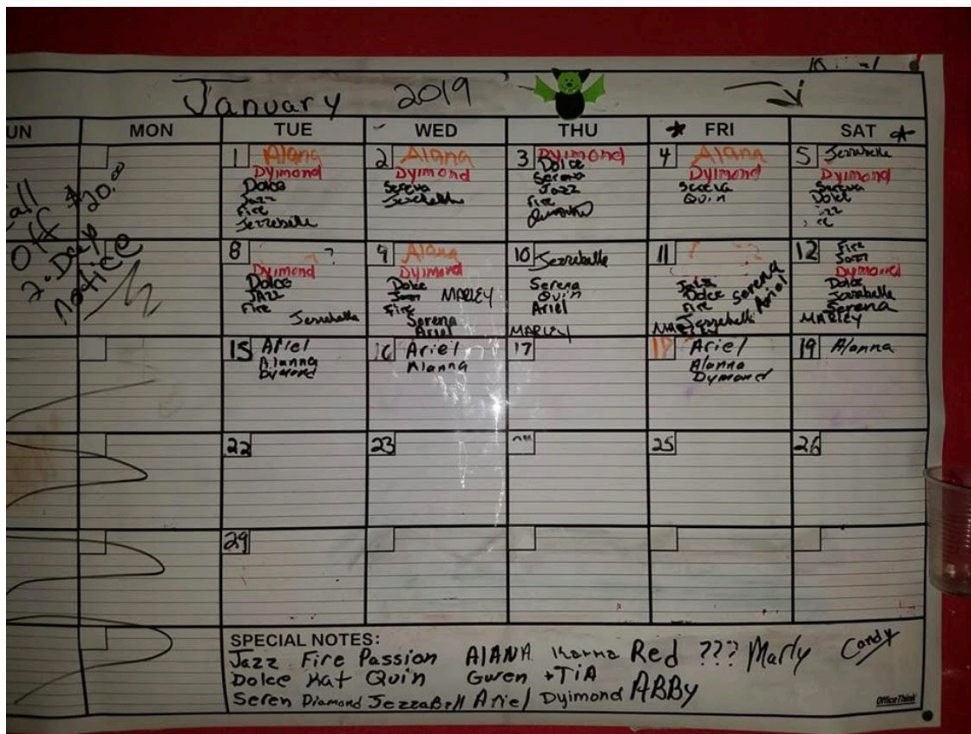 January 2019
UN MON TUE WED THU FRI SAT
all
Off $20.00
2-Day
Notice
1 Alana
Dyimond
Dolce
Jazz
Fire
Jezzebelle
2 Alana
Dyimond
Sereva
3 Dyimond
Dolce
Serena
Jazz
Fire
4 Alana
Dyimond
Quin
5 Jezzebelle
Dyimond
Dolce
8 ?
Dyimond
Dolce
Jazz
Fire
Jezzebelle
9 Alana
Dyimond
Dolce
Jazz MARLEY
Fire
Serena
Ariel
10 Jezzebelle
Serena
Quin
Ariel
MARLEY
11
Jazz
Dolce Serena
Fire Ariel
Jezzebelle
12 Fire
Jazz
Dyimond
Dolce
Jezzabelle
Serena
MARLEY
15 Ariel
Alanna
Dymond
16 Ariel
Alanna
17
18 Ariel
Alanna
Dymond
19 Alanna
22 23 25 26
29
SPECIAL NOTES:
Jazz Fire Passion AlANA Karma Red ??? Marly Candy
Dolce Kat Quin Gwen + TiA
Seren Diamond JezzaBell Ariel Dyimond ABBy
OfficeThink